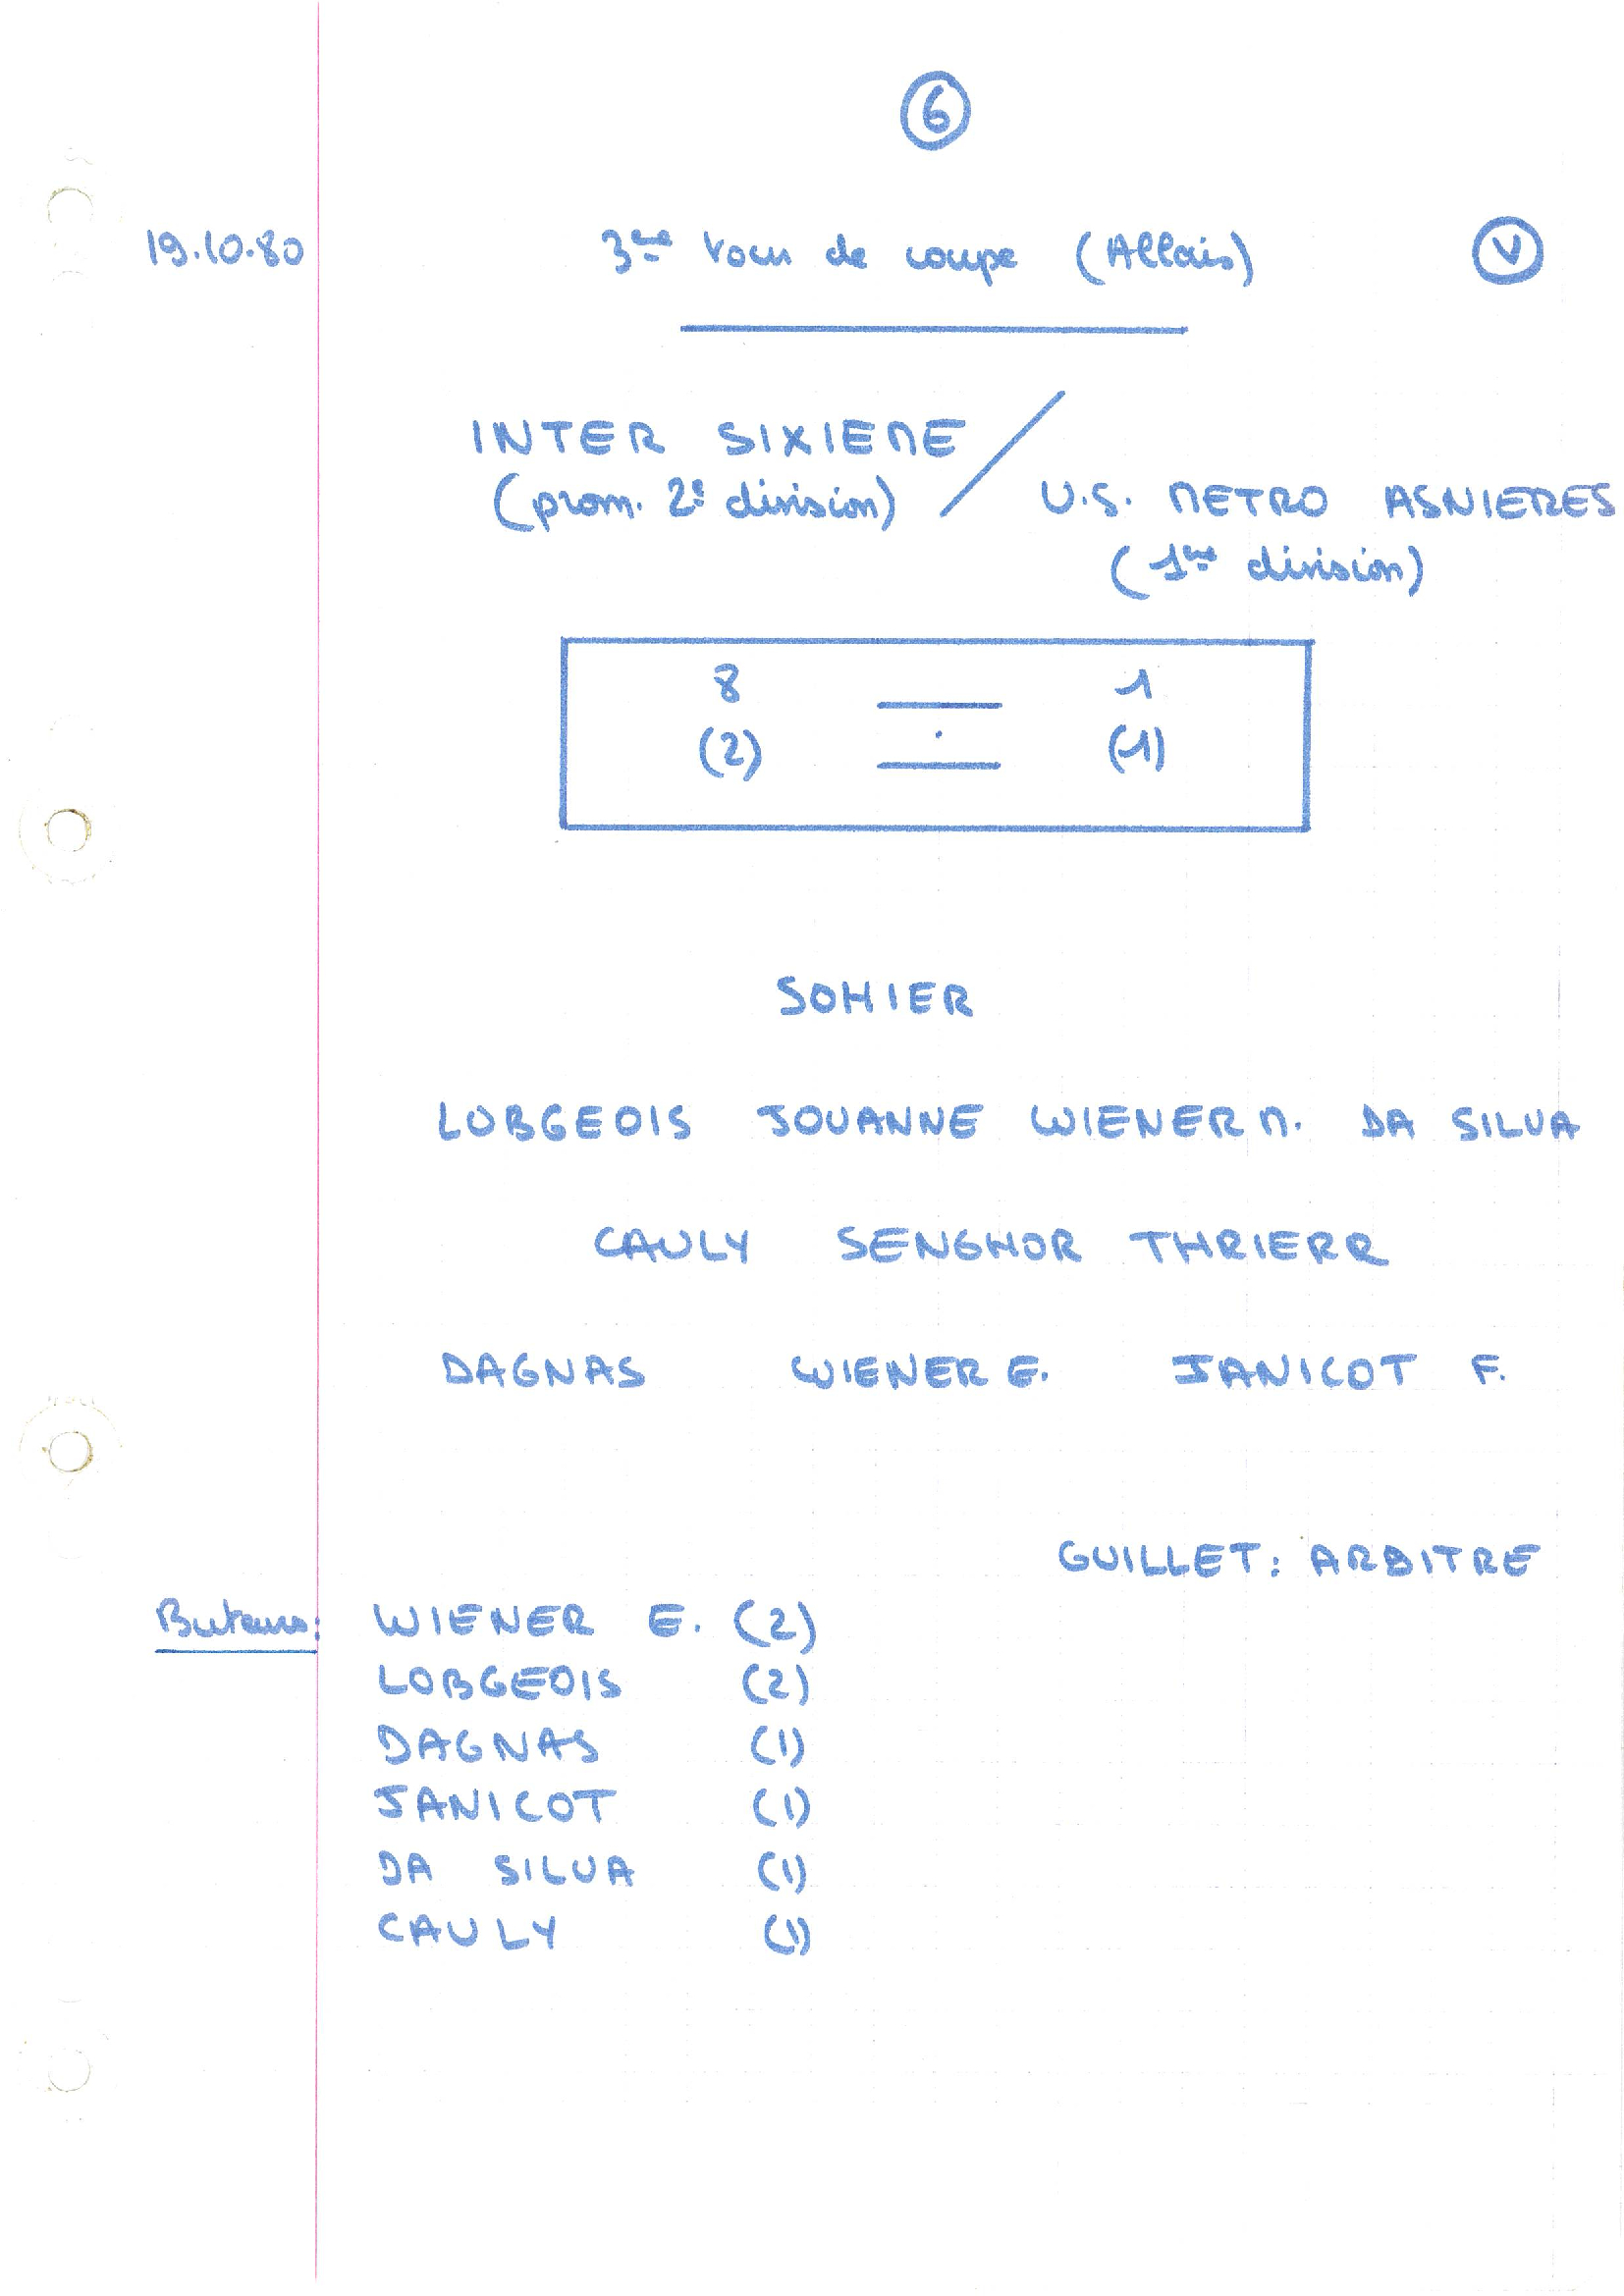 6
19.10.80 3ème tour de coupe (Allais) V
INTER SIXIEME /
(prom. 2e division) U.S. METRO ASNIERES
(1ère division)
8 — 1
(2) — (1)
SOHIER
LOBGEOIS JOUANNE WIENER M. DA SILVA
CAULY SENGHOR THRIERR
DAGNAS WIENER E. JANICOT F.
GUILLET : ARBITRE
Buteurs : WIENER E. (2)
LOBGEOIS (2)
DAGNAS (1)
JANICOT (1)
DA SILVA (1)
CAULY (1)